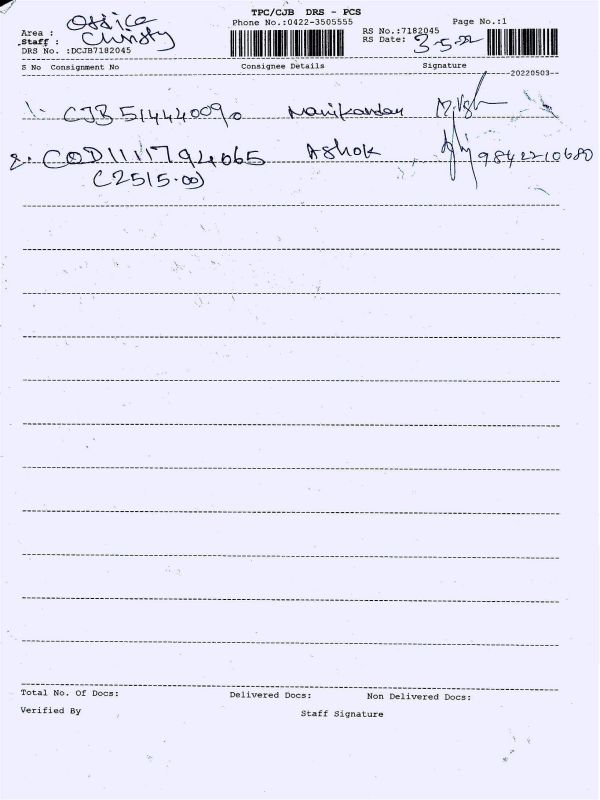 TPC/CJB DRS - PCS
Area : Office Phone No.:0422-3505555 RS No.:7182045 Page No.:1
Staff : Christy RS Date: 3-5-22
DRS No. :DCJB7182045
S No Consignment No Consignee Details Signature
--20220503--
1. CJB514440090 Manikandan
2. COD11111794065 Ashok 9842210680
(2515.00)
Total No. Of Docs: Delivered Docs: Non Delivered Docs:
Verified By Staff Signature